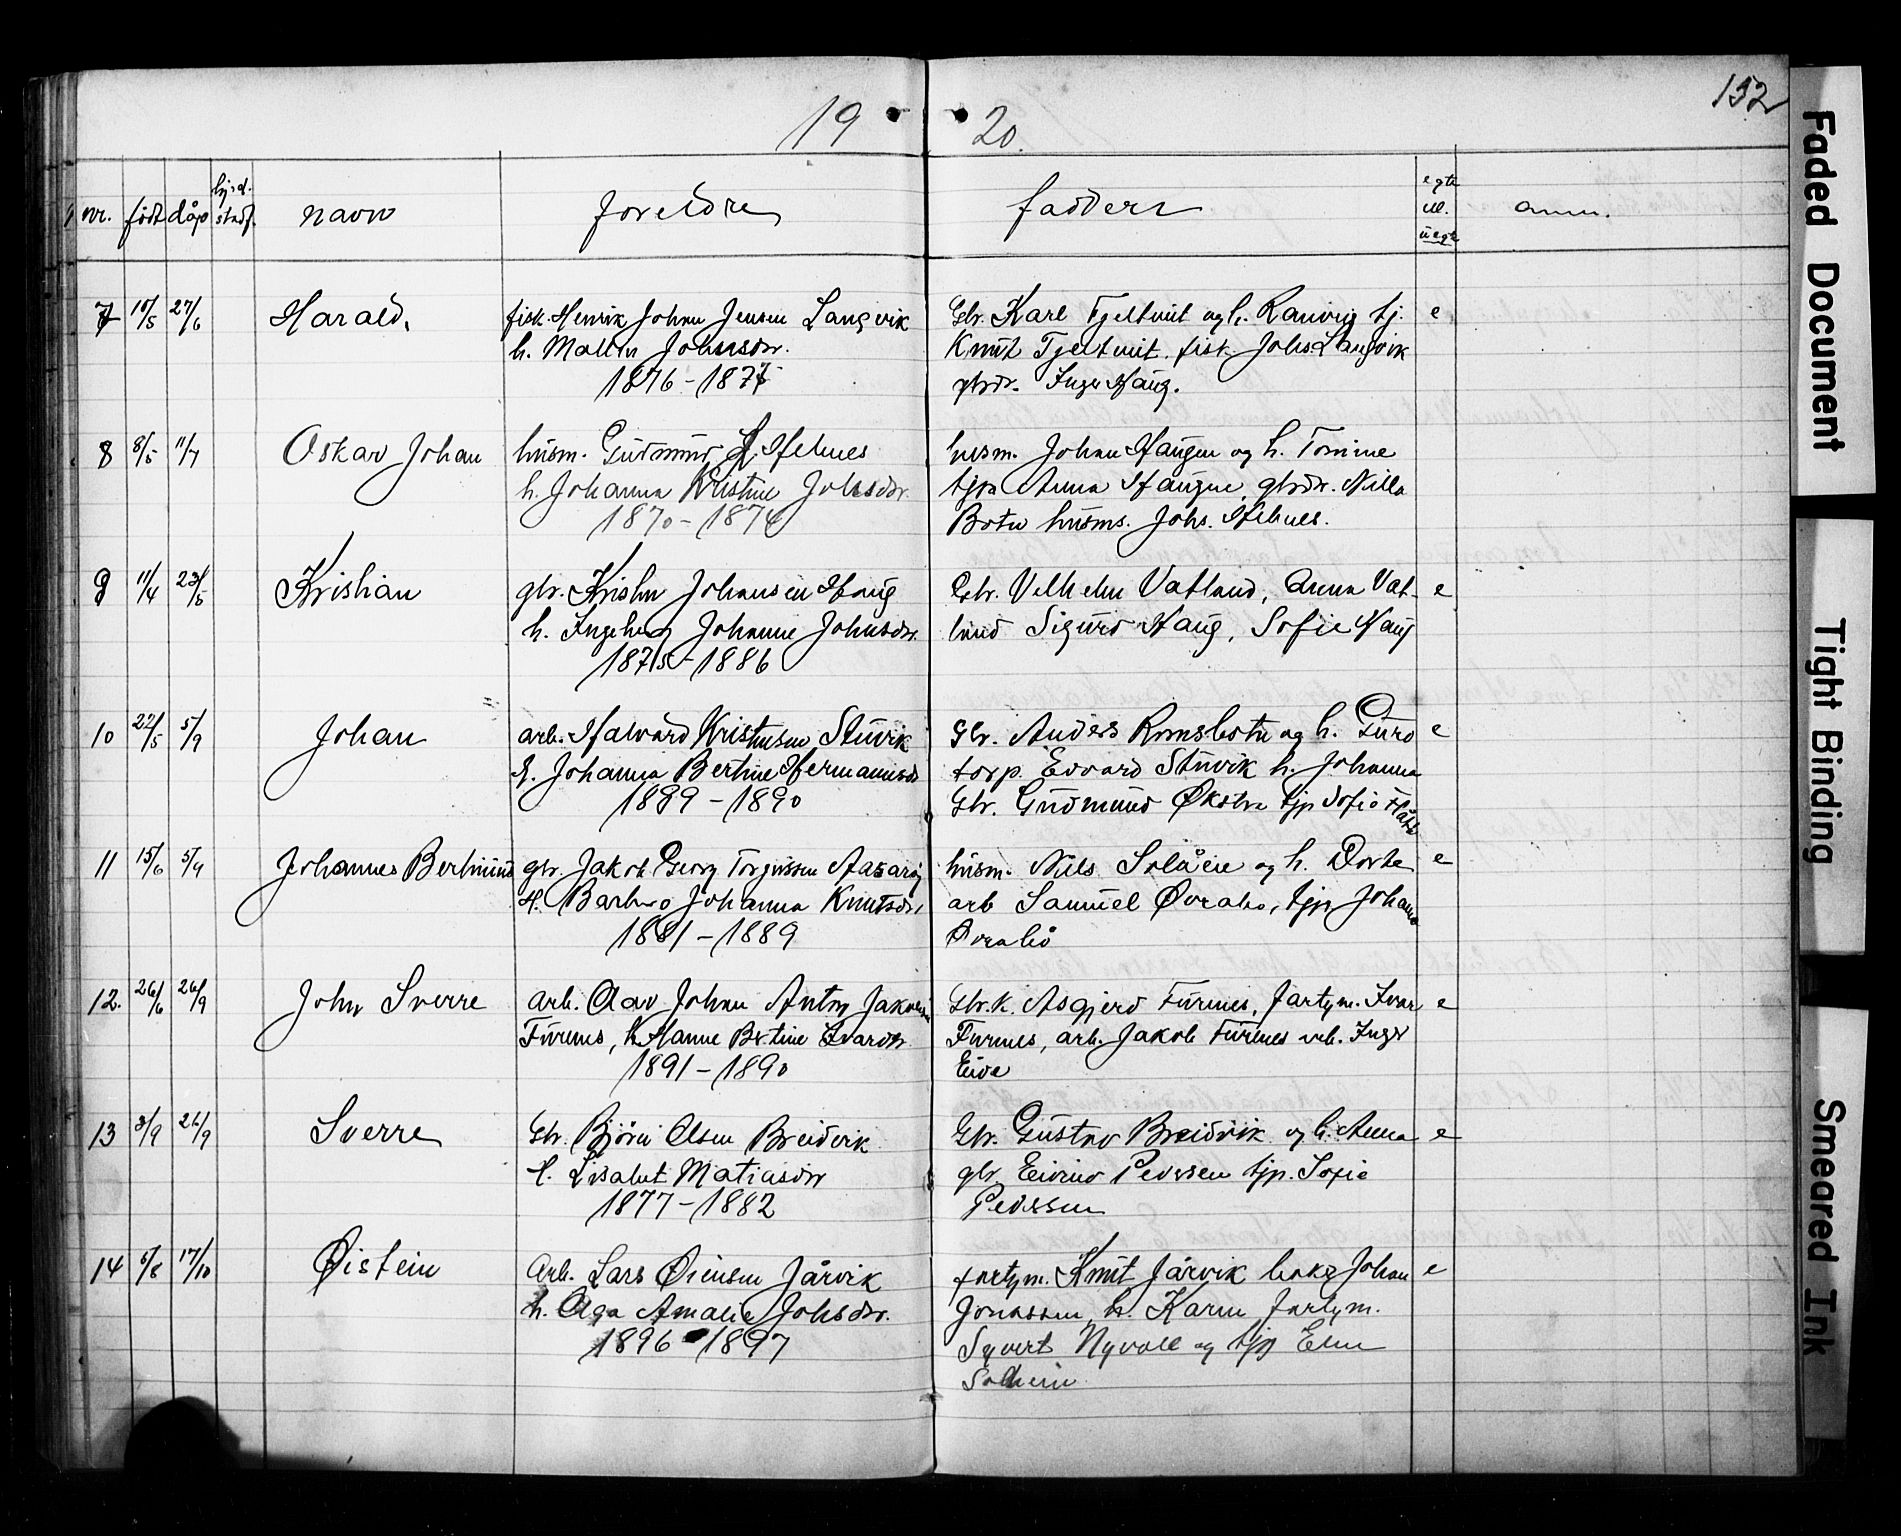 152
19 20.
nr. født dåp hj.d. stadf. navn foreldre faddere egte ell. uegte anm.
7 10/5 27/6 Harald. fisk. Henrik Johan Jensen Langvik Gbr. Karl Tjeltveit og h. Ranvig tj. e
h. Malin Johnsdr. Knut Tjeltveit. fisk. Johs Langvik
1876 - 187 gbrdr. Inger Haug.
8 8/5 11/7 Oskar Johan husm. Gudmund Helnes husm. Johan Haugen og h. Tomine
h. Johanna Kristine Johsdr. tjp. Anna Haugen, gbrdr. Nilla
1870 - 1874 Botn husms. Johs. Helnes.
9 11/4 23/5 Kristian gbr. Kristen Johansen Haug Gbr. Vilhelm Vatland, Anna Vat- e
h. Ingeborg Johanne Johnsdr. land Sigurd Haug, Sofie Haug
1875 - 1886
10 22/5 5/9 Johan arb. Halvard Kristensen Stuvik Gbr. Anders Romsbotn og h. Guro e
h. Johanna Bertine Hermannsdr torp. Edvard Stuvik h. Johanna
1889 - 1890 Gbr. Gudmund Økstra tjp Sofie
11 15/6 5/9 Johannes Bertinius gbr. Jakob Georg Torgersen husm. Nils Solåeie og h. Dorte e
h. Barbro Johanna Knutsdr. arb Samuel Øvrabø, tjp. Johanna
1881 - 1889 Øvrabø
12. 26/6 26/9 John Sverre arb. Olav Johan Anton Jakobsen Gbr.k. Asgjerd Furnes, fartym. Ivar e
Furnes, h. Hanne Bertine Ivarsdr. Furnes, arb. Jakob Furnes arb. Inger
1891 - 1890 Eide
13 3/9 26/9 Sverre Gbr. Bjørn Olsen Breidvik Gbr. Gustav Breidvik og h. Anna e
h. Lisabet Matiasdr gbr. Eivind Pedersen tjp. Sofie
1877 - 1882 Pedersen
14 6/8 17/10 Øistein Arb. Lars Øiensen Jårvik fartym. Knut Jårvik Johan e
h. Olga Amalie Johsdr. Jonassen, h. Karen fartym.
1896 - 1897 Syvert Nyvoll og tjp Elen
Solheim
Faded Document
Tight Binding
Smeared Ink